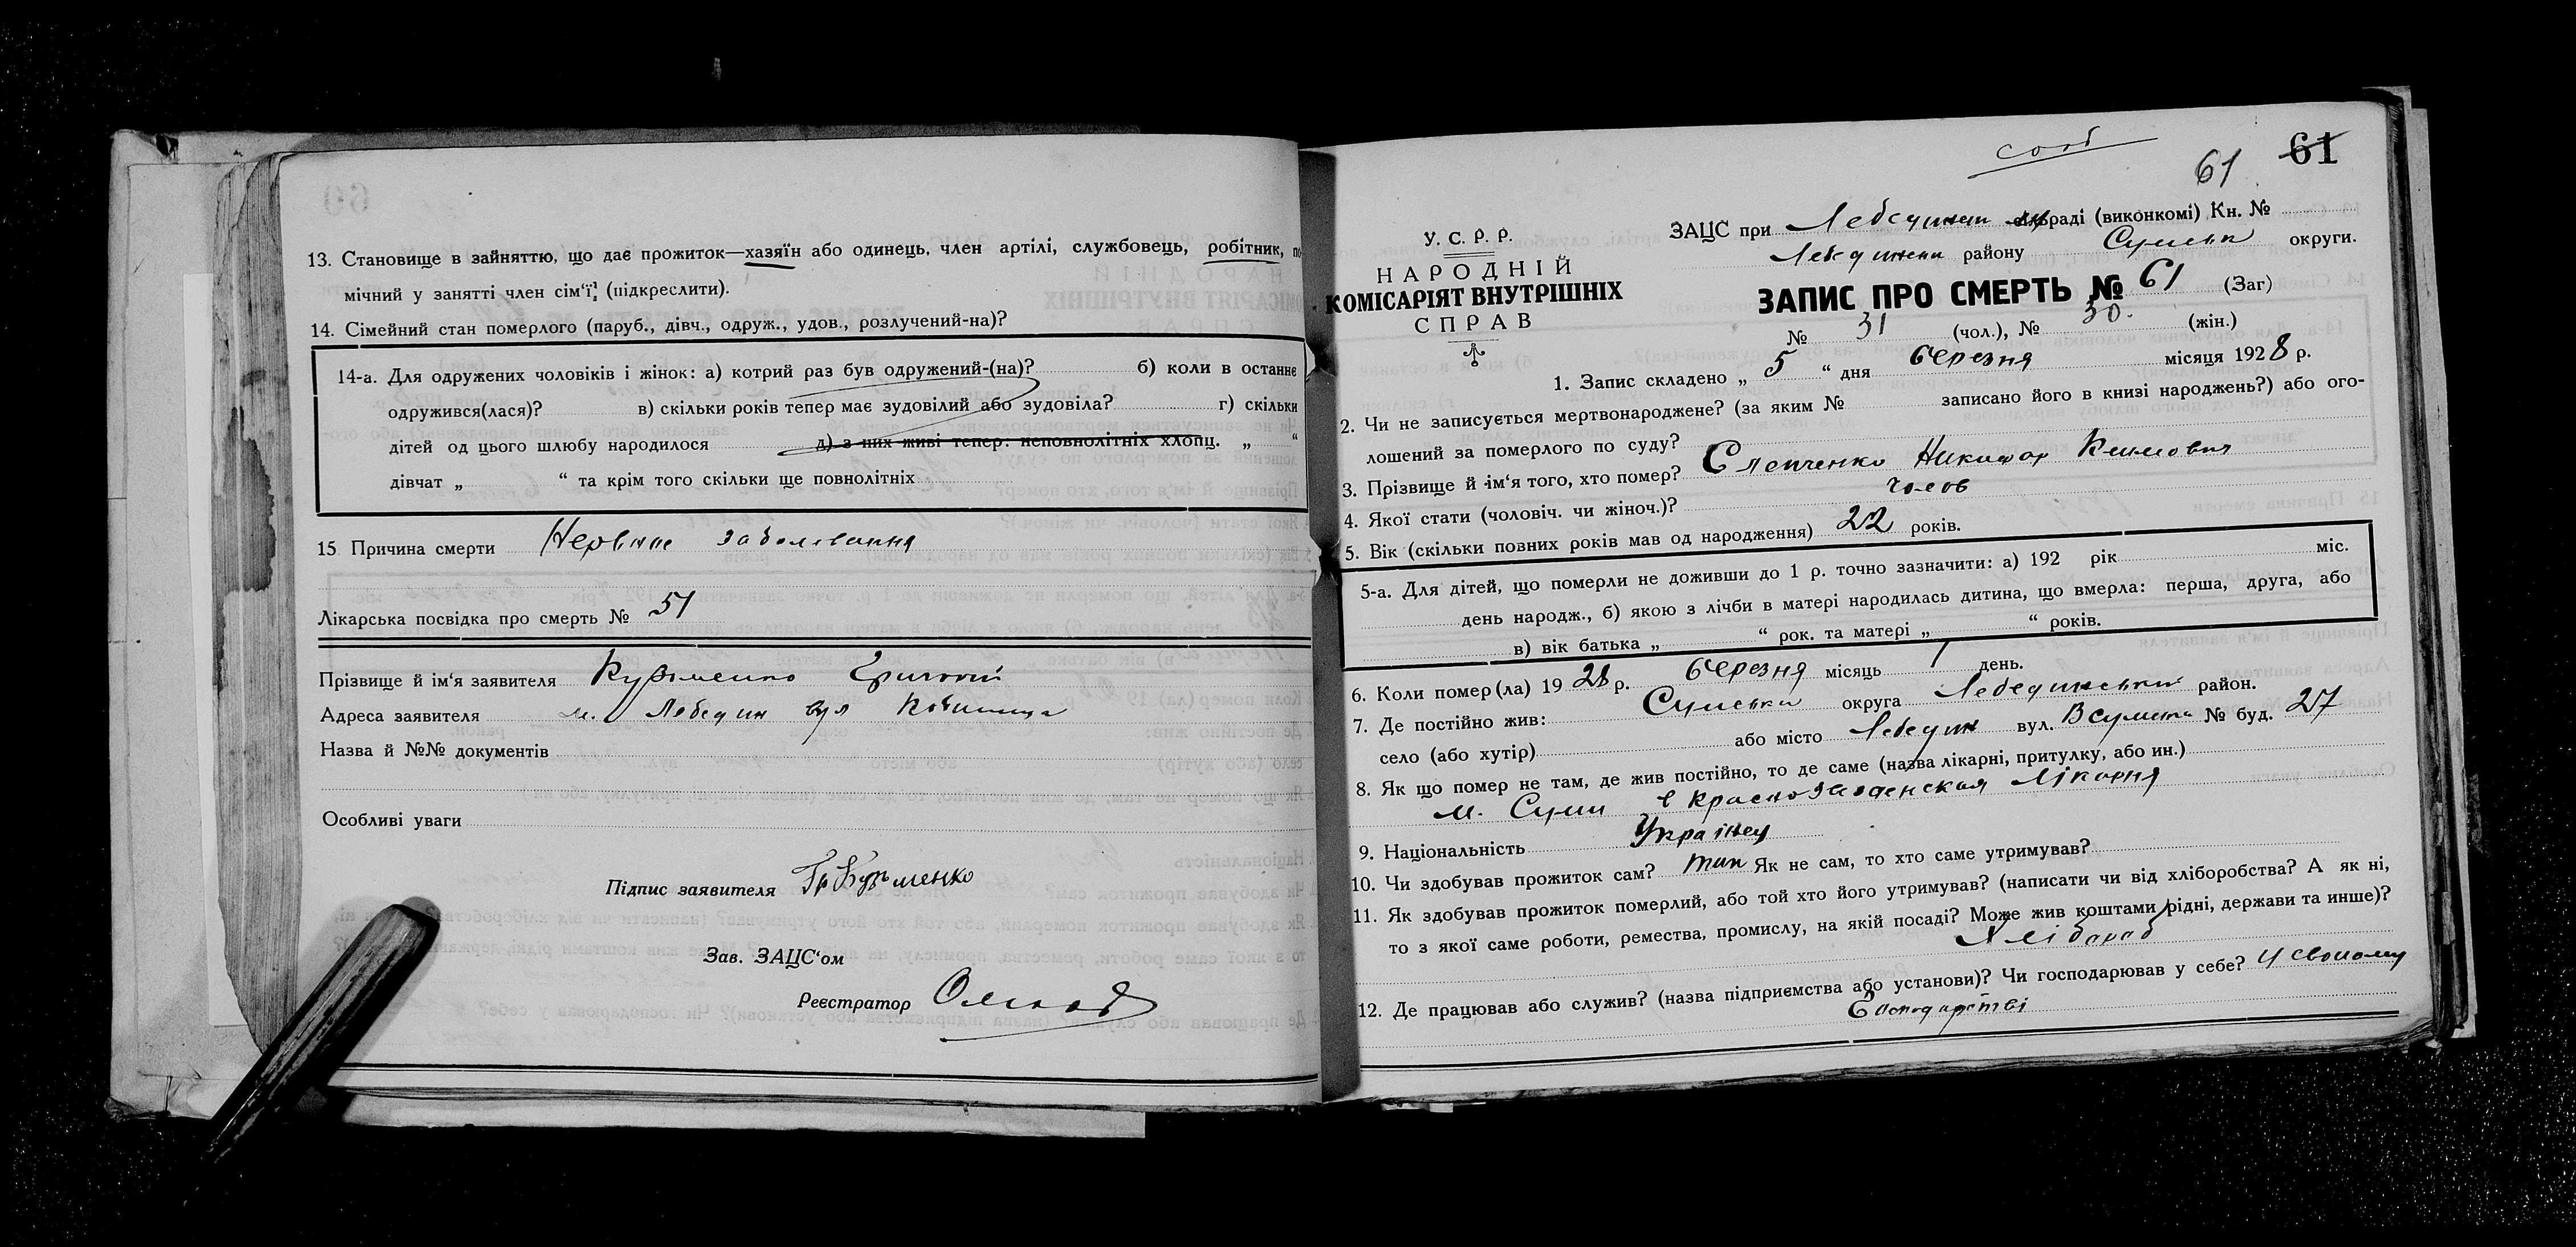 13. Становище в зайняттю, що дає прожиток—хазяїн або одинець, член артілі, службовець, робітник, по-
мічний у занятті член сім'ї (підкреслити).
14. Сімейний стан померлого (паруб., дівч., одруж., удов., розлучений-на)?
14-а. Для одружених чоловіків і жінок: а) котрий раз був одружений-(на)? б) коли в останнє
одружився(лася)? в) скільки років тепер має зудовілий або зудовіла? г) скільки
дітей од цього шлюбу народилося д) з них живі тепер: неповнолітніх хлопц. „ “
дівчат „ “ та крім того скільки ще повнолітніх
15 Причина смерти Нервное заболевання
Лікарська посвідка про смерть № 51
Прізвище й ім'я заявителя Курменко Григорій
Адреса заявителя м. Лебедин вул
Назва й №№ документів
Особливі уваги
Підпис заявителя Гр Курменко
Зав. ЗАЦС'ом
Реєстратор
61 61
У. С. Р. Р.
НАРОДНІЙ
КОМІСАРІЯТ ВНУТРІШНІХ
СПРАВ
ЗАЦС при Лебединск раді (виконкомі) Кн. №
Лебединськ району Сумськ округи.
ЗАПИС ПРО СМЕРТЬ № 61 (Заг)
№ 31 (чол.), № 30. (жін.)
1. Запис складено „ 5 “ дня березня місяця 1928 р.
2. Чи не записується мертвонароджене? (за яким № записано його в книзі народжень?) або ого-
лошений за померлого по суду?
3. Прізвище й ім'я того, хто помер? Слепченко Никифор Климович
4. Якої стати (чоловіч. чи жіноч.)? чолов
5. Вік (скільки повних років мав од народження) 22 років.
5-а. Для дітей, що померли не доживши до 1 р. точно зазначити: а) 192 рік міс.
день народж., б) якою з лічби в матері народилась дитина, що вмерла: перша, друга, або
в) вік батька „ “ рок. та матері „ “ років.
6. Коли помер(ла) 1928 р. березня місяць 1 день.
7. Де постійно жив: Сумська округа Лебединський район.
село (або хутір) або місто Лебедин вул. В Сумська № буд. 27
8. Як що помер не там, де жив постійно, то де саме (назва лікарні, притулку, або ин.)
м. Суми в Краснозвезденская Лікарня
9. Національність Українец
10. Чи здобував прожиток сам? так Як не сам, то хто саме утримував?
11. Як здобував прожиток померлий, або той хто його утримував? (написати чи від хліборобства? А як ні,
то з якої саме роботи, ремества, промислу, на якій посаді? Може жив коштами рідні, держави та инше)?
Хлібороб
12. Де працював або служив? (назва підприємства або установи)? Чи господарював у себе? У своєому
Господарстві